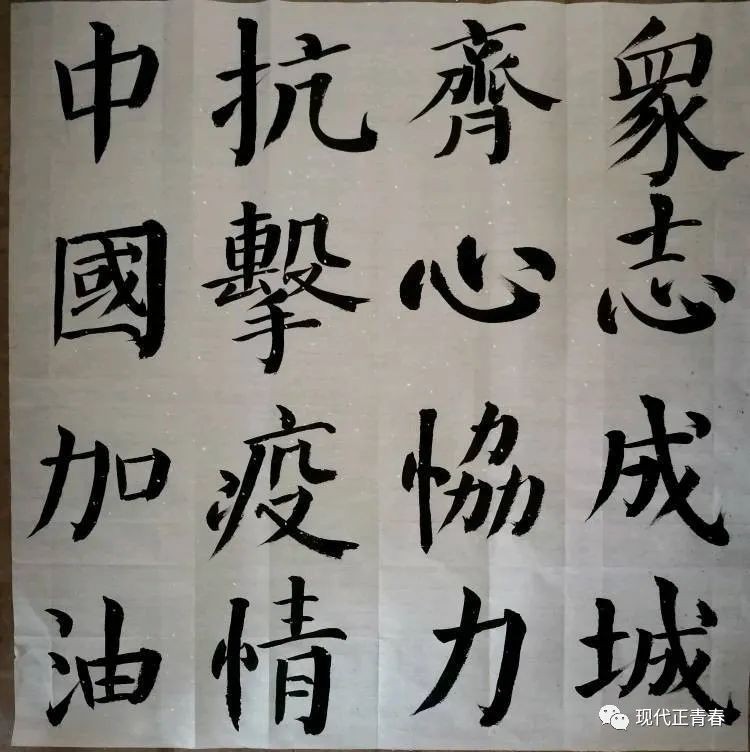 眾志成城
齊心恊力
抗擊疫情
中國加油
现代正青春